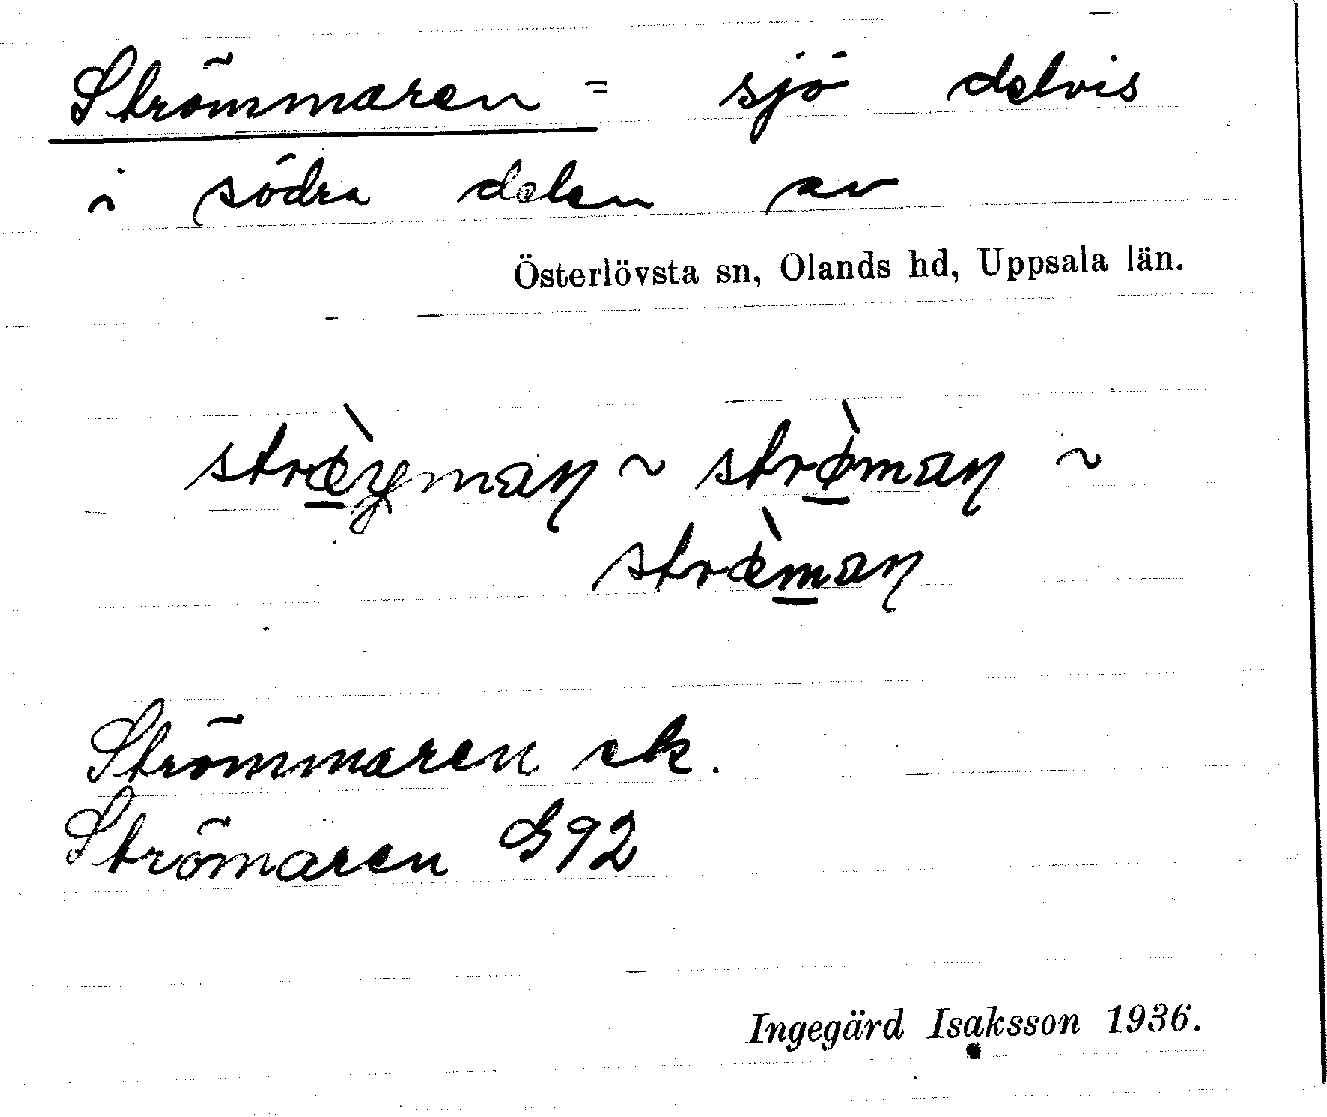 Strömmaren = sjö delvis
i södra delen av
Österlövsta sn, Olands hd, Uppsala län.
~ strø̀man ~
Strömmaren ek.
Strömaren G92
Ingegärd Isaksson 1936.